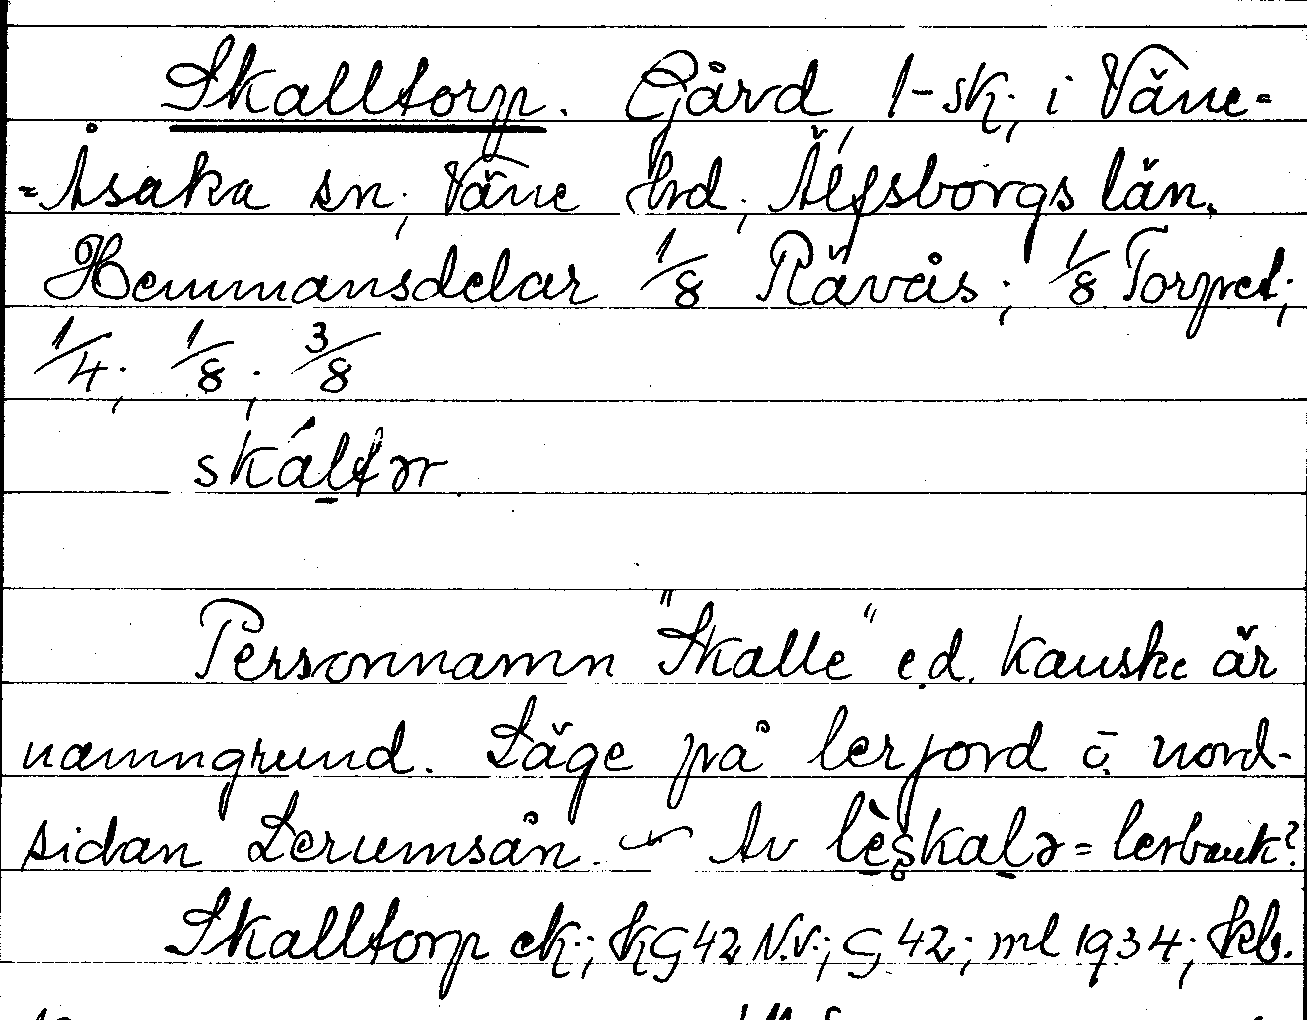 Skalltorp. Gård 1-sk; i Väne-
=Åsaka sn; Väne hd; Älfsborgs län.
Hemmansdelar 1/8 Rävås; 1/8 Torpet;
1/4; 1/8; 3/8
skáltər
Personnamn "Skalle" e.d. kanske är
namngrund. Läge på lerjord å nord-
sidan Lerumsån. Av lèskalə = lerbank?
Skalltorp ek; KG 42 N.V.; G 42; ml 1934; kb.